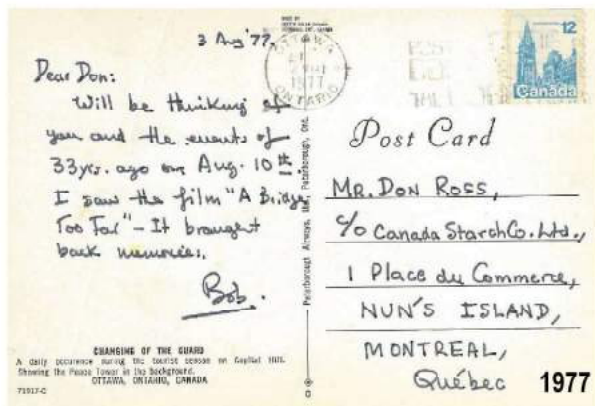 3 Aug '77
Dear Don:
Will be thinking of
you and the events of
33yrs. ago on Aug. 10th.
I saw the film "A Bridge
Too Far" - It brought
back memories.
Bob.
CHANGING OF THE GUARD
A daily occurence during the tourist season on Capital Hill.
Showing the Peace Tower in the background.
OTTAWA, ONTARIO, CANADA
71917-C
Peterborough Airways, Peterborough, Ont.
OTTAWA
1977
ONTARIO
12
Canada
Post Card
MR. DON ROSS,
c/o Canada Starch Co. Ltd.,
1 Place du Commerce,
NUN'S ISLAND,
MONTREAL,
Québec
1977